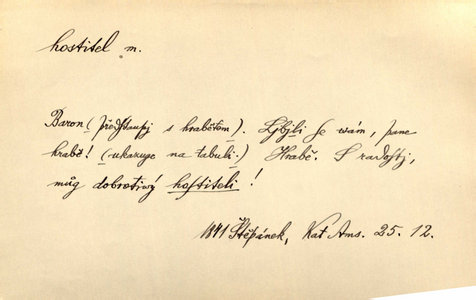 hostitel m.
Baron (předstaupj s hrabětom). Ljbjli se wám, pane
hrabě! (ukazuge na tabuli.) Hrabě. S radostj,
můg dobrotiwý hostiteli!
1841 Štěpánek, Kat Ams. 25. 12.